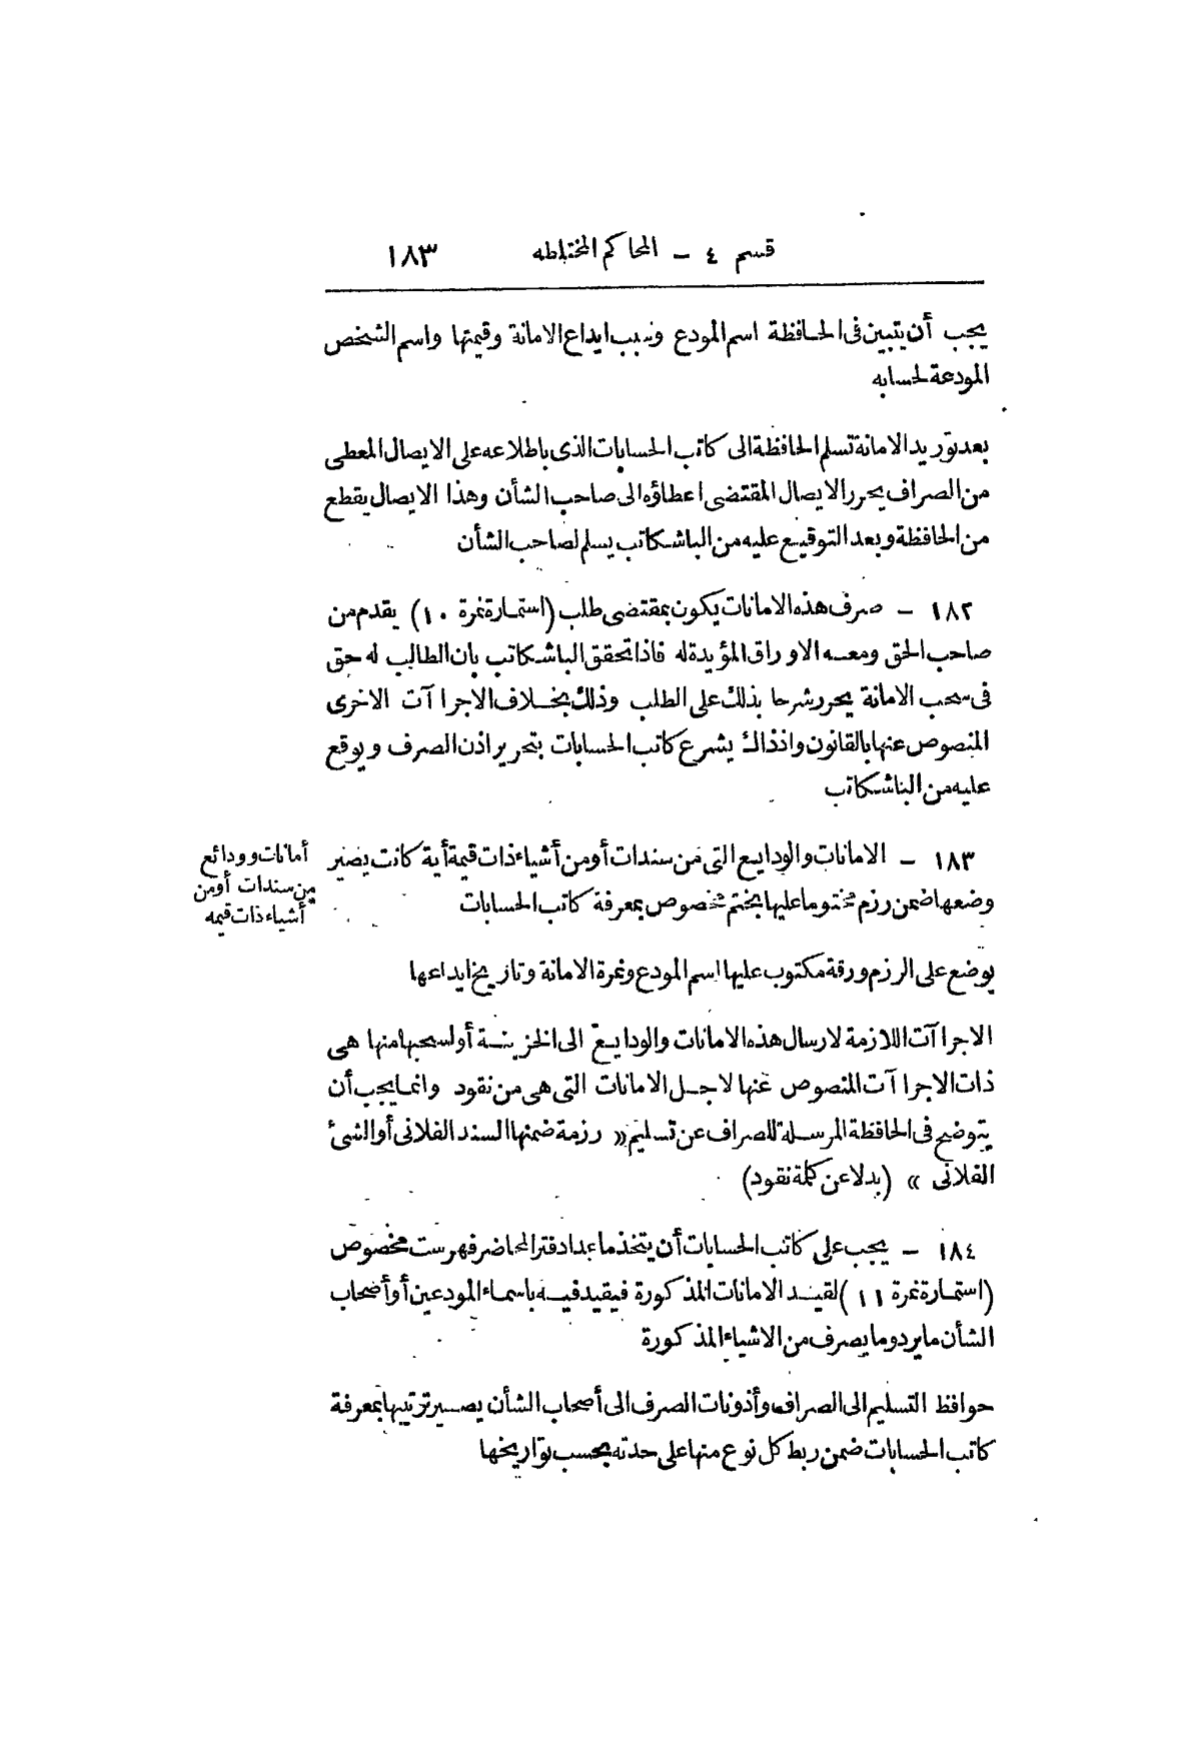 قسم ٤ – المحاكم المختلطه ١٨٣
يجب أن يتبين فى الحافظة اسم المودع وسبب ايداع الامانة وقيمتها واسم الشخص
المودعة لحسابه
بعد توريد الامانة تسلم الحافظة الى كاتب الحسابات الذى باطلاعه على الايصال المعطى
من الصراف يحرر الايصال المقتضى اعطاؤه الى صاحب الشأن وهذا الايصال يقطع
من الحافظة وبعد التوقيع عليه من الباشكاتب يسلم لصاحب الشأن
١٨٢ – صرف هذه الامانات يكون بمقتضى طلب (استمارة نمرة ١٠) يقدم من
صاحب الحق ومعه الاوراق المؤيدة له فاذا تحقق الباشكاتب بان الطالب له حق
فى سحب الامانة يحرر شرحا بذلك على الطلب وذلك بخلاف الاجراآت الاخرى
المنصوص عنها بالقانون واذ ذاك يشرع كاتب الحسابات بتحرير اذن الصرف ويوقع
عليه من الباشكاتب
١٨٣ – الامانات والودايع التى من سندات أو من أشياء ذات قيمة أية كانت يصير
وضعها ضمن رزم مختوما عليها بختم مخصوص بمعرفة كاتب الحسابات
أمانات وودائع
من سندات أو من
أشياء ذات قيمه
يوضع على الرزم ورقة مكتوب عليها اسم المودع ونمرة الامانة وتاريخ ايداعها
الاجراآت اللازمة لارسال هذه الامانات والودايع الى الخزينة أو لسحبها منها هى
ذات الاجراآت المنصوص عنها لاجل الامانات التى هى من نقود وانما يجب أن
يتوضح فى الحافظة المرسلة للصراف عن تسليم « رزمة ضمنها السند الفلانى أو الشئ
الفلانى » (بدلا عن كلمة نقود)
١٨٤ – يجب على كاتب الحسابات أن يتخذ ما عدا دفتر المحاضر فهرست مخصوص
(استمارة نمرة ١١) لقيد الامانات المذكورة فيقيد فيه باسماء المودعين أو أصحاب
الشأن ما يرد وما يصرف من الاشياء المذكورة
حوافظ التسليم الى الصراف وأذونات الصرف الى أصحاب الشأن يصير ترتيبها بمعرفة
كاتب الحسابات ضمن ربط كل نوع منها على حدته بحسب تواريخها